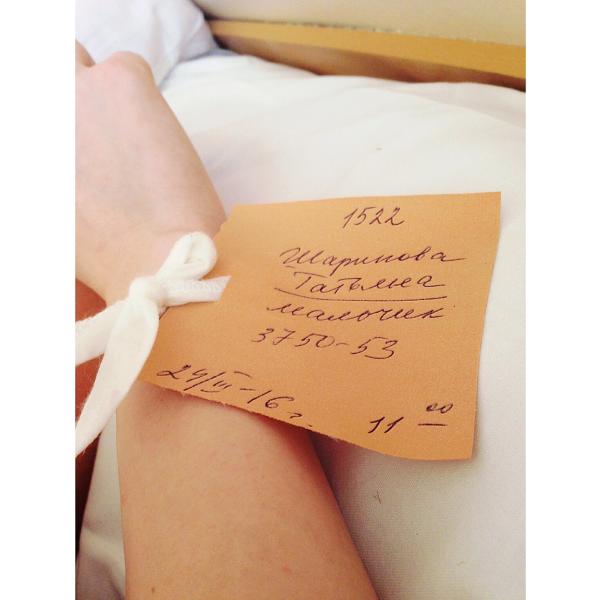 1522
Шарипова
Татьяна
мальчик
3750-53
24/III-16 г. 11 00